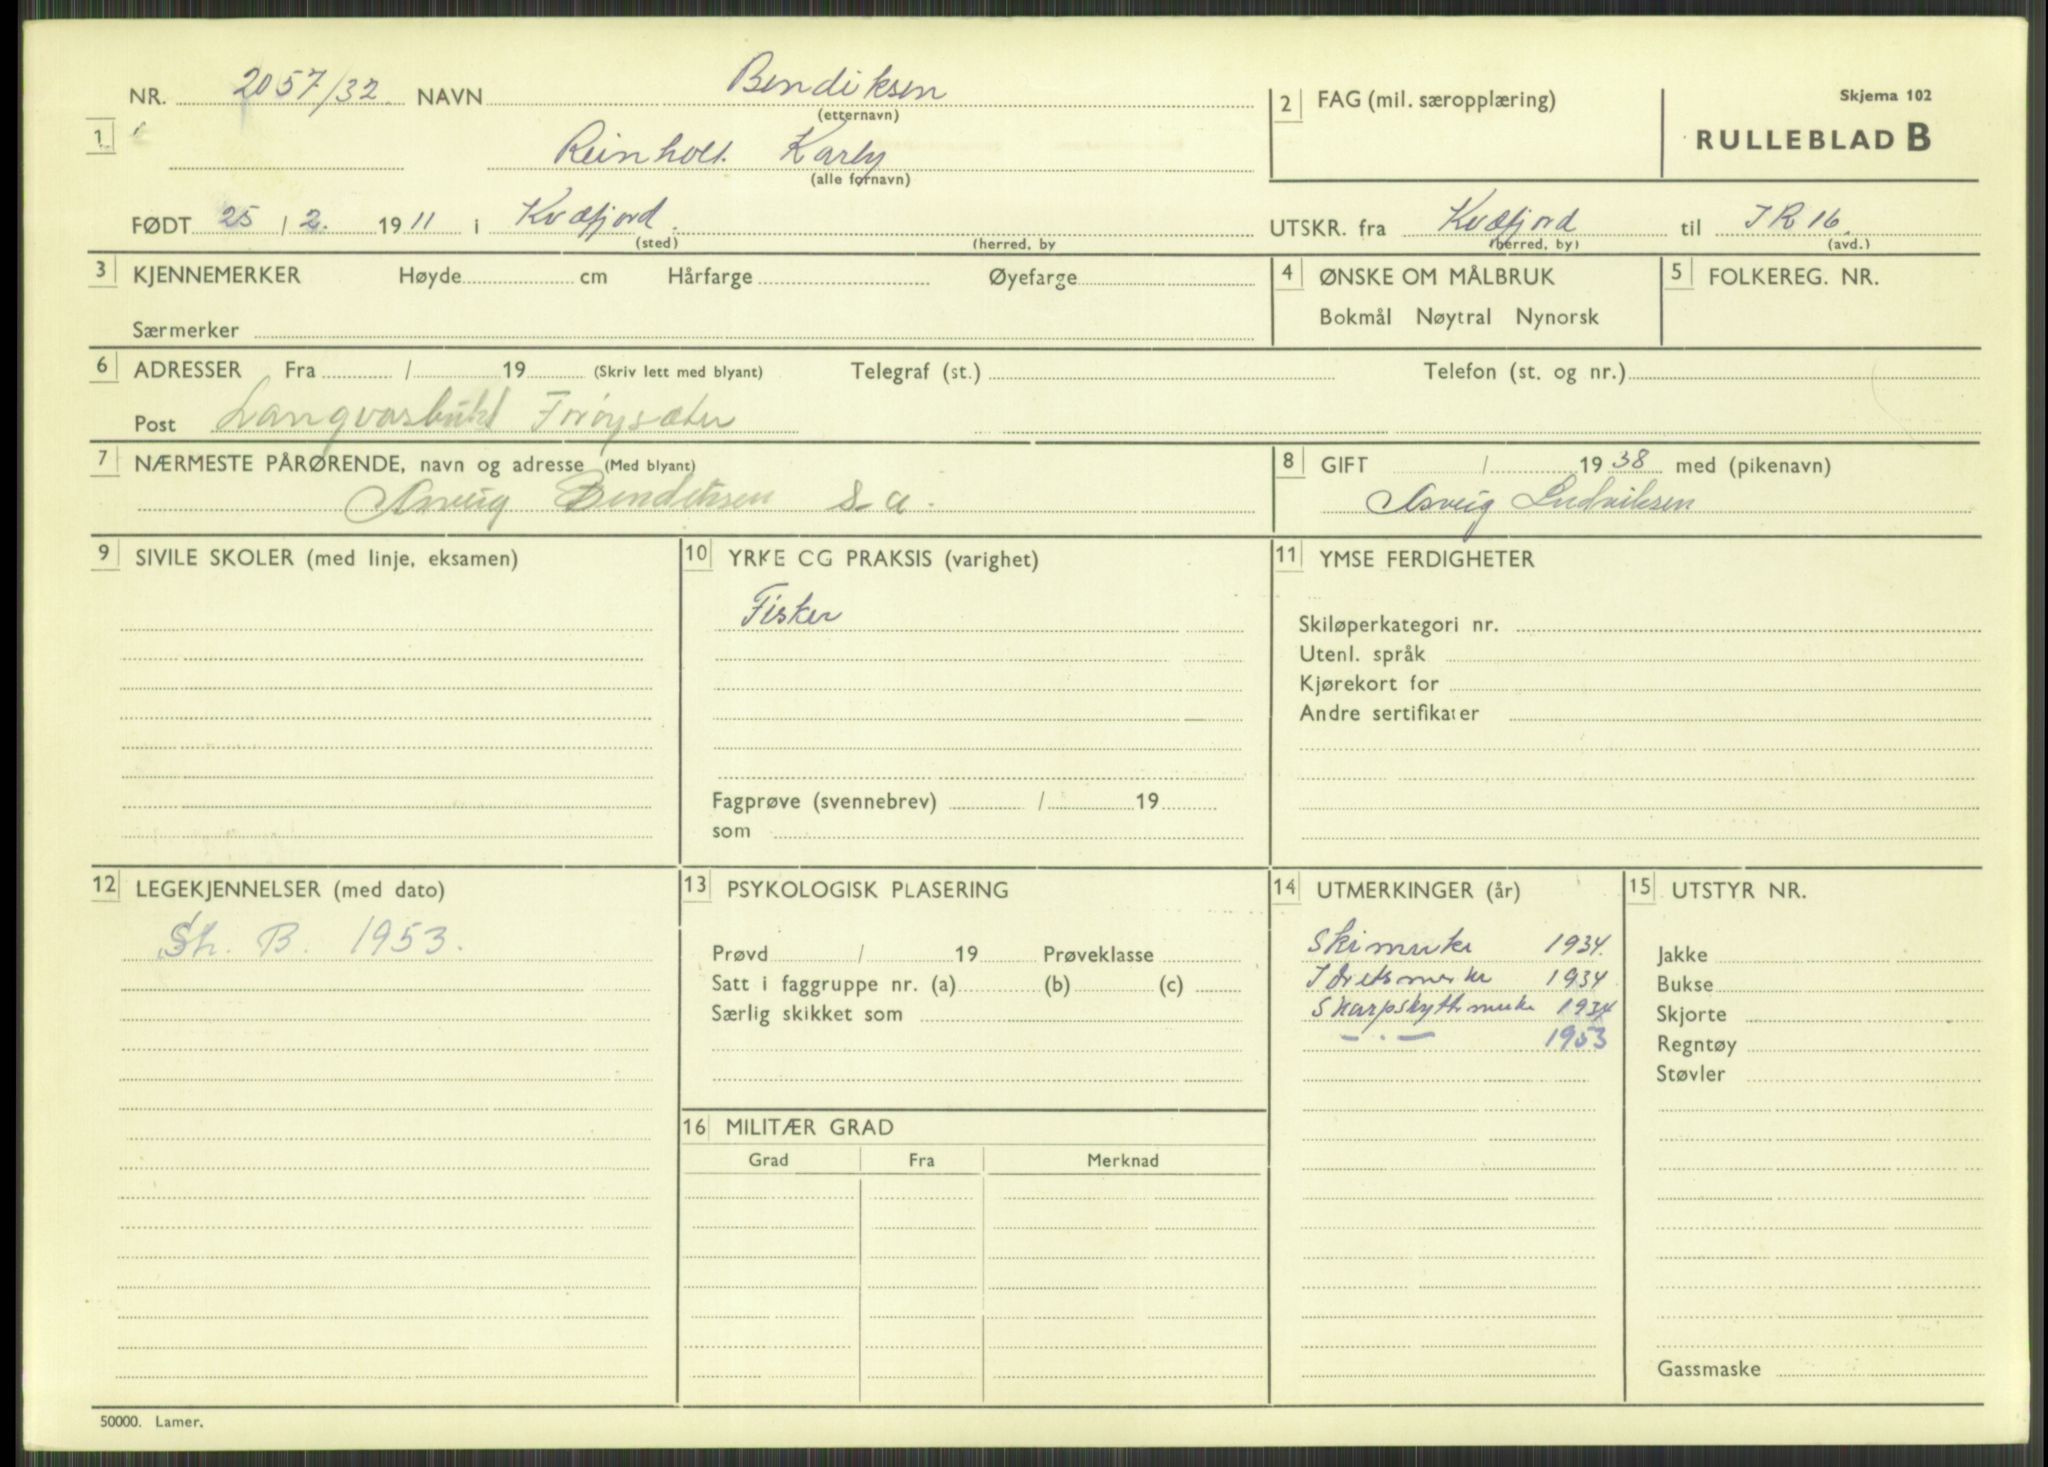 NR. 2057/32 NAVN Bendiksen
(etternavn)
2 FAG (mil. særopplæring)
Skjema 102
RULLEBLAD B
1
Reinholt Karly
(alle fornavn)
FØDT 25 / 2. 1911 i Kvæfjord.
(sted) (herred, by
UTSKR. fra Kvæfjord til IR 16.
(herred, by) (avd.)
3 KJENNEMERKER Høyde cm Hårfarge Øyefarge
Særmerker
4 ØNSKE OM MÅLBRUK
Bokmål Nøytral Nynorsk
5 FOLKEREG. NR.
6 ADRESSER Fra / 19 (Skriv lett med blyant) Telegraf (st.) Telefon (st. og nr.)
Post Langvasbukt
7 NÆRMESTE PÅRØRENDE, navn og adresse (Med blyant)
Asveig Bendiksen s.a.
8 GIFT / 1938 med (pikenavn)
Asveig Ludviksen
9 SIVILE SKOLER (med linje, eksamen)
10 YRKE CG PRAKSIS (varighet)
Fisker
Fagprøve (svennebrev) / 19
som
11 YMSE FERDIGHETER
Skiløperkategori nr.
Utenl. språk
Kjørekort for
Andre sertifikater
12 LEGEKJENNELSER (med dato)
St. B. 1953.
13 PSYKOLOGISK PLASERING
Prøvd / 19 Prøveklasse
Satt i faggruppe nr. (a) (b) (c)
Særlig skikket som
14 UTMERKINGER (år)
Skimerke 1934.
Idretsmerke 1934
Skarpskyttermerke 1934
— . — 1953
15 UTSTYR NR.
Jakke
Bukse
Skjorte
Regntøy
Støvler
Gassmaske
16 MILITÆR GRAD
Grad Fra Merknad
50000. Lamer.